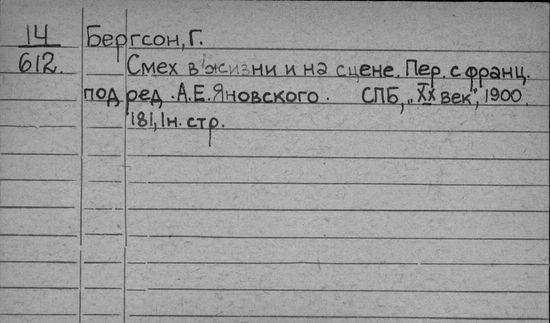 14 Бергсон, Г.
612. Смех в жизни и на сцене. Пер. с франц.
под ред. А.Е.Яновского. СПБ, „XX век", 1900.
181, 1н. стр.